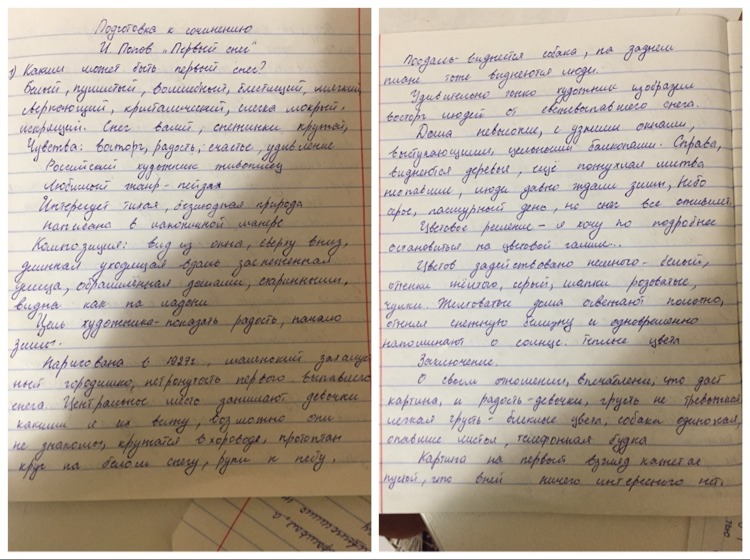 Подготовка к сочинению
И. Попов "Первый снег"
1) Каким может быть первый снег?
Белый, пушистый, волшебный, блестящий, мягкий
сверкающий, кристалический, слегка мокрый,
искрящий. Снег валит, снежинки кружат,
Чувства: восторг, радость, счастье, удивление
Российский художник живописец
Любимый жанр - пейзаж
Интересует тихая, безлюдная природа
написано в лаконичной манере
Композиция: вид из окна, сверху вниз,
длинная уходящая вдаль заснеженная
улица, обрамлённая домами, старинными,
видна как на ладони
Цель художника - показать радость, начало
зимы.
Нарисована в 1927г., маленький
городишко, нетронутость первого выпавшего
снега. Центральное место занимают девочки
какими я их вижу, возможно они
не знакомы, кружатся в хороводе, протоптан
круг на белом снегу, руки к небу.
Поодаль виднеется собака, на заднем
плане тоже виднеются люди.
Удивительно тонко художник изобразил
восторг людей от свежевыпавшего снега.
Дома невысокие, с узкими окнами,
выступающими, цельными балконами. Справа,
виднеются деревья, ещё пожухлая листва
неопавшие, люди давно ждали зимы, Небо
серое, пасмурный день, но снег все оживил.
Цветовое решение - я хочу по подробнее
остановиться на цветовой гамме...
Цветов задействовано немного - белый,
оттенки жёлтого, серый, шапки розоватые,
чулки. Желтоватые дома освещают полотно,
оттеняя снежную белизну и одновременно
напоминают о солнце. Теплые цвета
Заключение.
О своём отношении, впечатлении, что даёт
картина, и радость - девочки, грусть не тревожная
легкая грусть - блеклые цвета, собака одинокая,
опавшие листья, телефонная будка
Картина на первый взгляд кажется
пустой, что в ней ничего интересного нет.